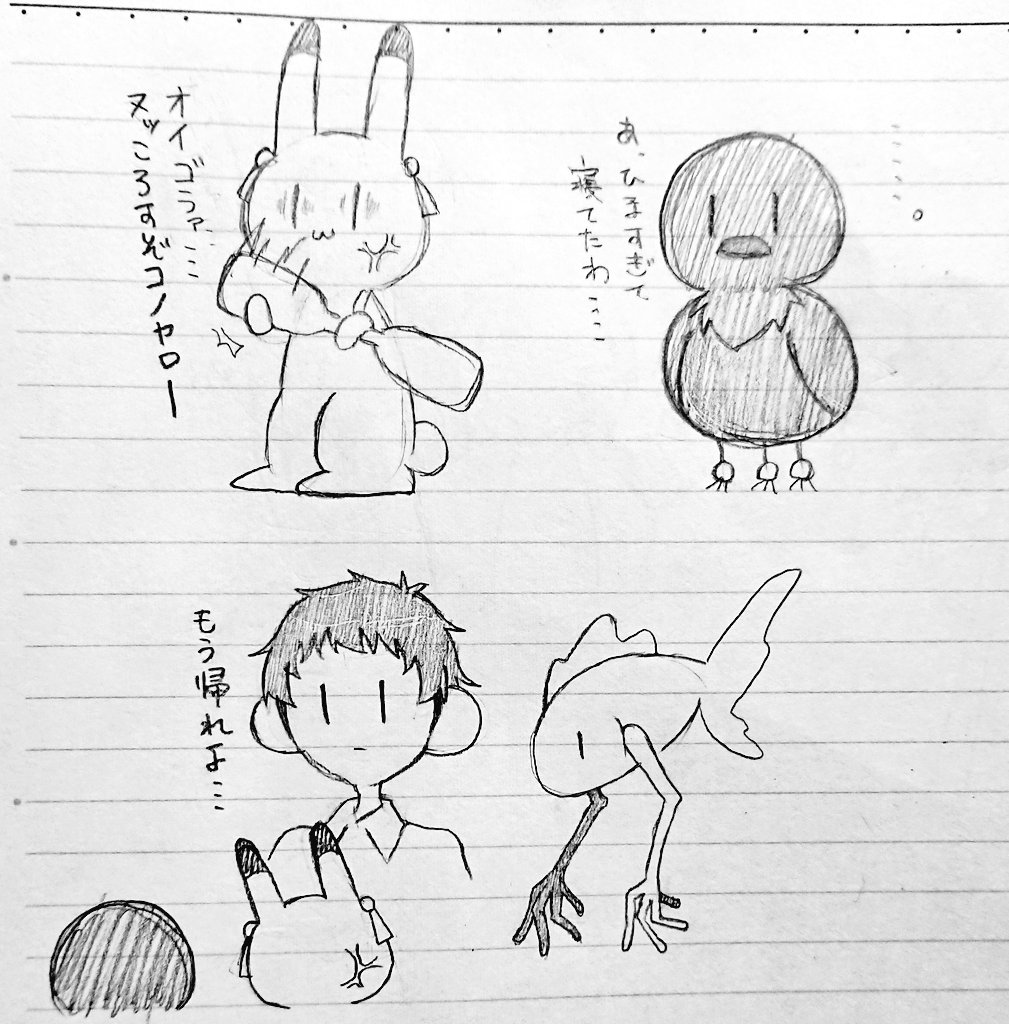 ……。
あ、ひますぎて
寝てたわ……
オイゴラァ……
ヌッころすぞコノヤロー
もう帰れよ……